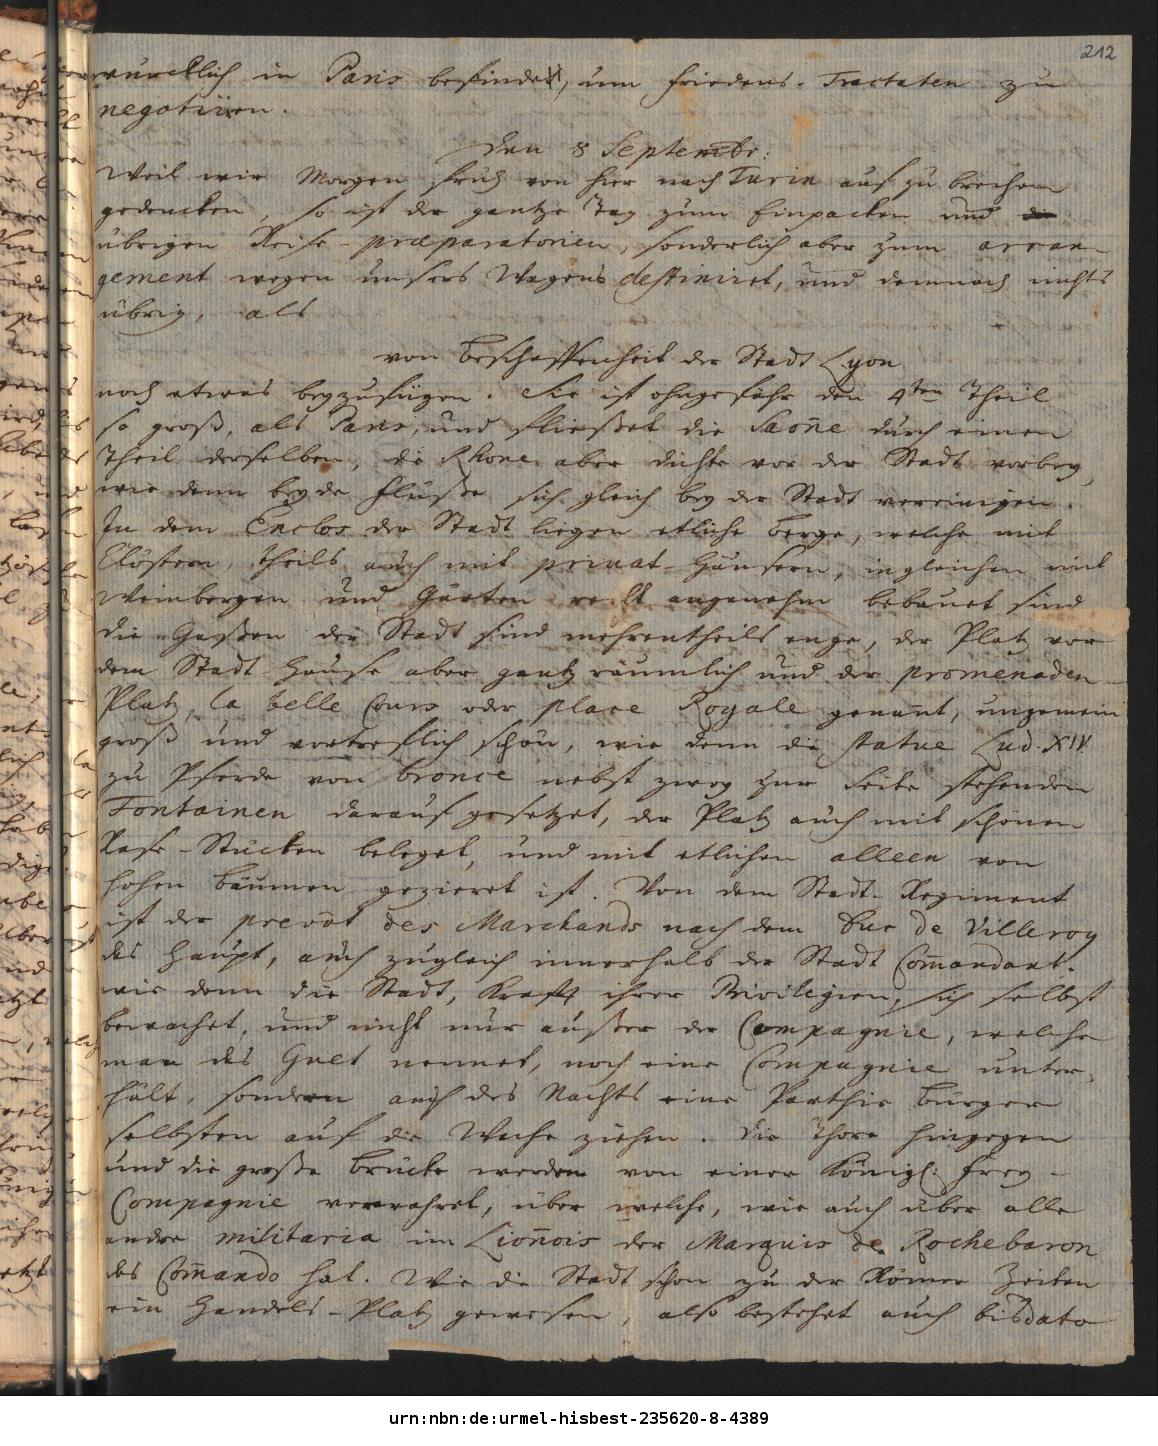 212
würcklich in Paris befindet, um Friedens-Tractaten zu
negotiiren.
Den 8 Septembr:
Weil wir Morgen früh von hier nach Turin aufzubrechen
gedencken, so ist der gantze Tag zum Einpacken und
übrigen Reise-præparatorien, sonderlich aber zum arran-
gement wegen unsers Wagens destiniret, und demnach nichts
übrig, als
von Beschaffenheit der Stadt Lyon
noch etwas beyzufügen. Sie ist ohngefähr den 4ten Theil
so groß, als Paris, und fließet die Saone durch einen
Theil derselben, die Rhone aber dichte vor der Stadt vorbey,
wie denn beyde Flüße sich gleich bey der Stadt vereinigen.
In dem Enclos der Stadt liegen etliche Berge, welche mit
Clöstern, theils auch mit privat-Häusern, ingleichen mit
Weinbergen und Gärten recht angenehm bebauet sind
die Gaßen der Stadt sind mehrentheils enge, der Platz vor
dem Stadt-Hause aber gantz räumlich und der promenaden
Platz, la belle Cours oder place Royale genannt, ungemein
groß und vortreflich schön, wie denn die statue Lud. XIV
zu Pferde von bronce nebst zwey zur Seite stehenden
Fontainen darauf gesetzet, der Platz auch mit schönen
Rase-Stücken beleget, und mit etlichen alleen von
hohen Bäumen gezieret ist. Von dem Stadt-Regiment
ist der prevôt des Marchands nach dem Duc de Villeroy
das Haupt, auch zugleich innerhalb der Stadt Com̄andant.
wie denn die Stadt, Krafft ihrer Privilegien, sich selbst
bewachet, und nicht nur außer der Compagnie, welche
man des Guet nennet, noch eine Compagnie unter-
hält, sondern auch des Nachts eine Parthie Bürger
selbsten auf die Wache ziehen. Die Thore hingegen
und die große Brücke werden von einer Königl: Frey-
Compagnie verwahret, über welche, wie auch über alle
andre militaria im Lion̄ois der Marquis de Rochebaron
das Com̄ando hat. Wie die Stadt schon zu der Römer Zeiten
ein Handels-Platz gewesen, also bestehet auch bis dato
urn:nbn:de:urmel-hisbest-235620-8-4389